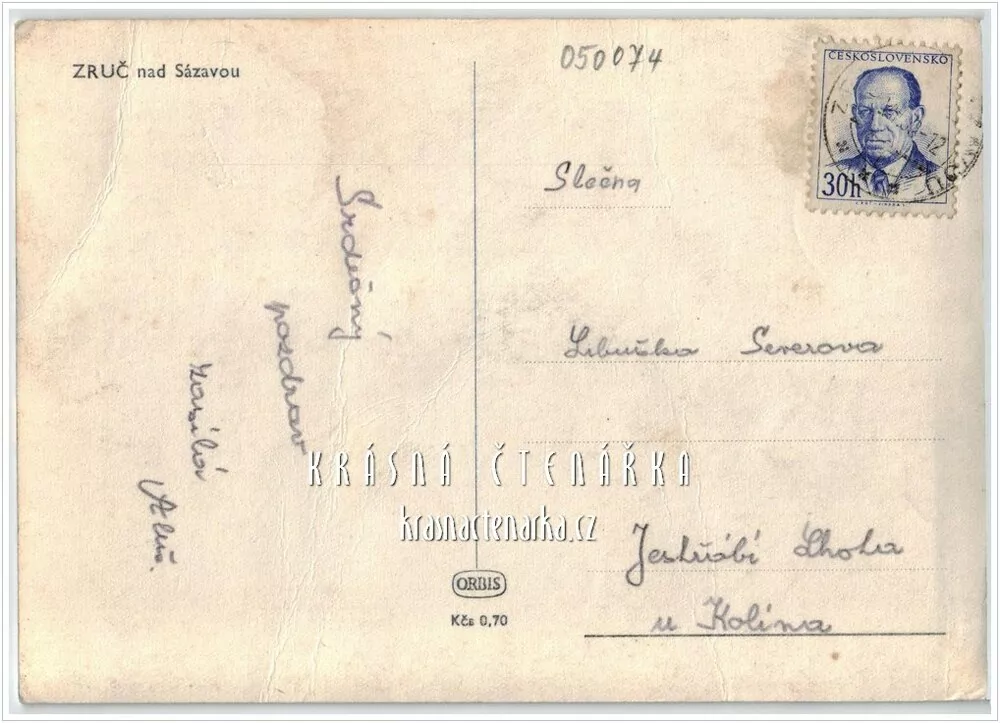 ZRUČ nad Sázavou
050074
ČESKOSLOVENSKO
30h
Slečna
Libuška Severova
Jestřábí Lhota
u Kolína
Srdečný
pozdrav
zasílá
KRÁSNÁ ČTENÁŘKA
krasnactenarka.cz
ORBIS
Kčs 0,70